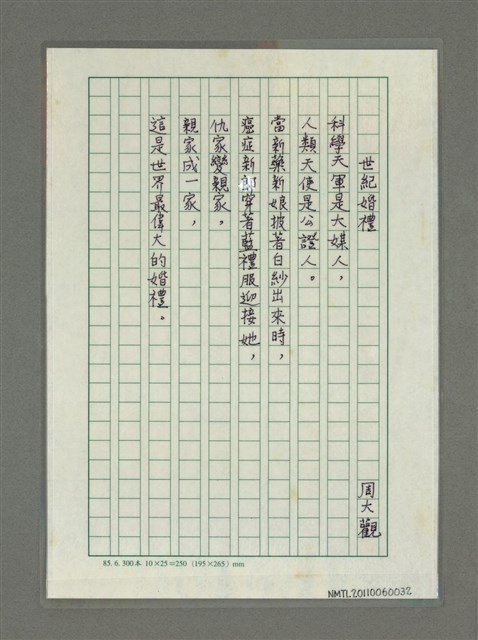 世紀婚禮
周大觀
科學天軍是大媒人，
人類天使是公證人。
當新藥新娘披著白紗出來時，
癌症新郎穿著藍禮服迎接她，
仇家變親家。
親家成一家，
這是世界最偉大的婚禮。
85. 6. 300本 10×25＝250（195×265）mm
NMTL20110060032